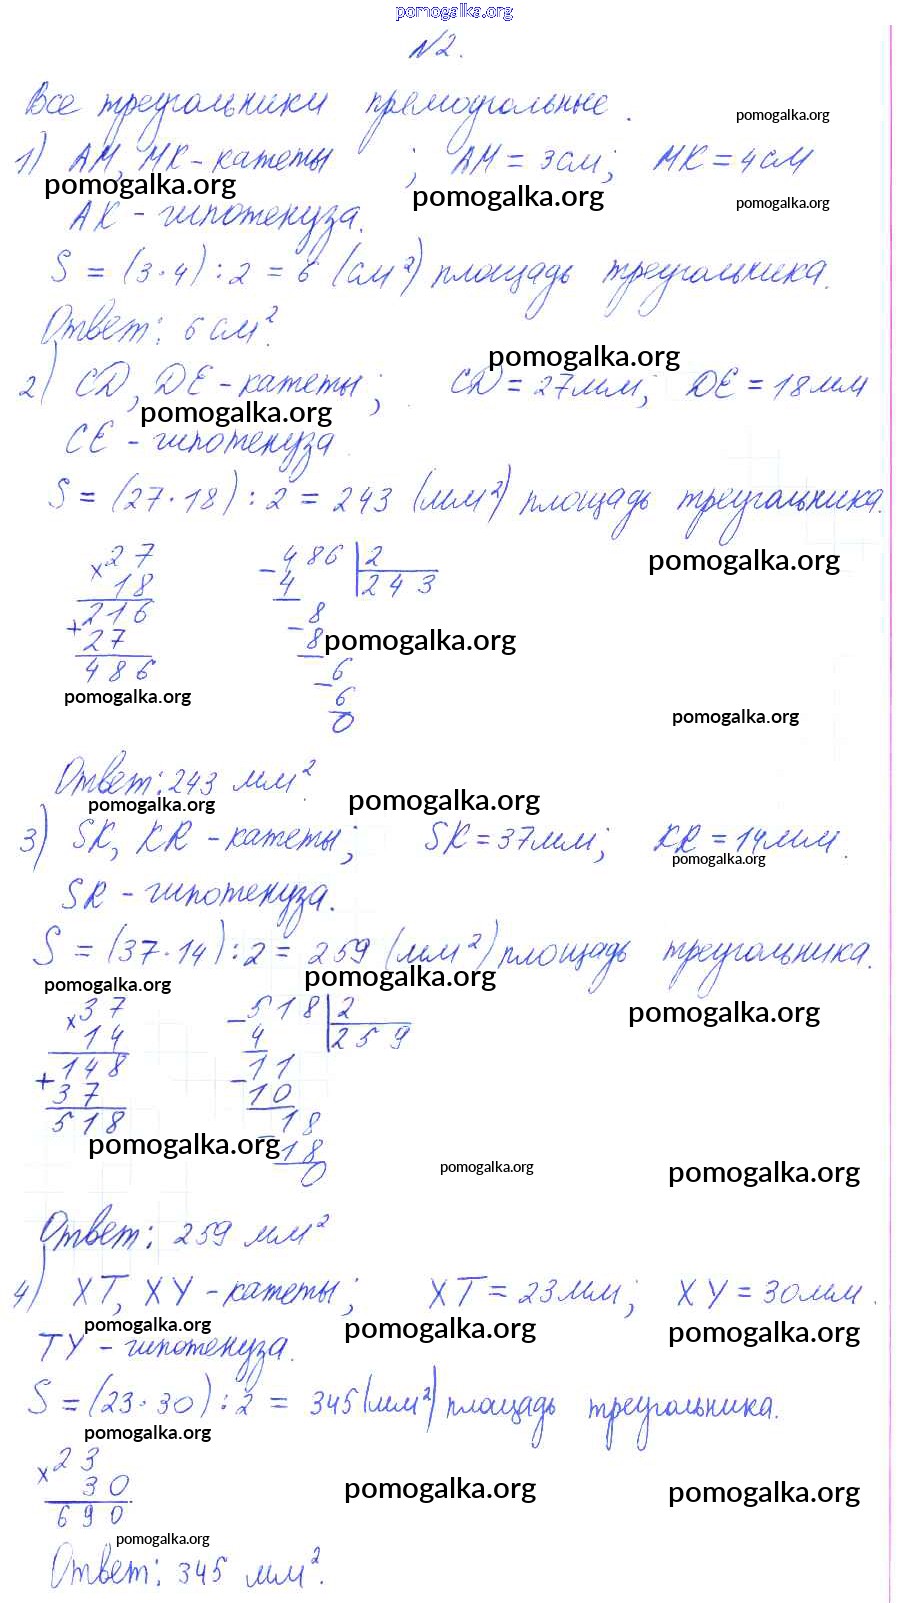 pomogalka.org
№2.
Все треугольники прямоугольные.
pomogalka.org
1) АМ, МК - катеты ; АМ = 3см; МК = 4см
pomogalka.org pomogalka.org pomogalka.org
АК - гипотенуза.
S = (3·4):2 = 6 (см²) площадь треугольника.
Ответ: 6 см².
pomogalka.org
2) CD, DE - катеты; CD = 27мм; DE = 18мм
pomogalka.org
CE - гипотенуза
S = (27·18):2 = 243 (мм²) площадь треугольника.
× 27 - 486 | 2
18 4 243
pomogalka.org
216 8
+ 27 - 8
pomogalka.org
486 - 6
pomogalka.org
6
0
pomogalka.org
Ответ: 243 мм²
pomogalka.org pomogalka.org
3) SK, KR - катеты; SK = 37мм; KR = 14мм.
pomogalka.org
SR - гипотенуза.
S = (37·14):2 = 259 (мм²) площадь треугольника.
pomogalka.org pomogalka.org
× 37 - 518 | 2
pomogalka.org
14 4 259
148 - 11
+ 37 10
518 - 18
pomogalka.org
18
0
pomogalka.org pomogalka.org
Ответ: 259 мм²
4) XT, XY - катеты; XT = 23мм; XY = 30мм.
pomogalka.org pomogalka.org pomogalka.org
TY - гипотенуза.
S = (23·30):2 = 345 (мм²) площадь треугольника.
pomogalka.org
× 23
30
pomogalka.org pomogalka.org
690
pomogalka.org
Ответ: 345 мм².